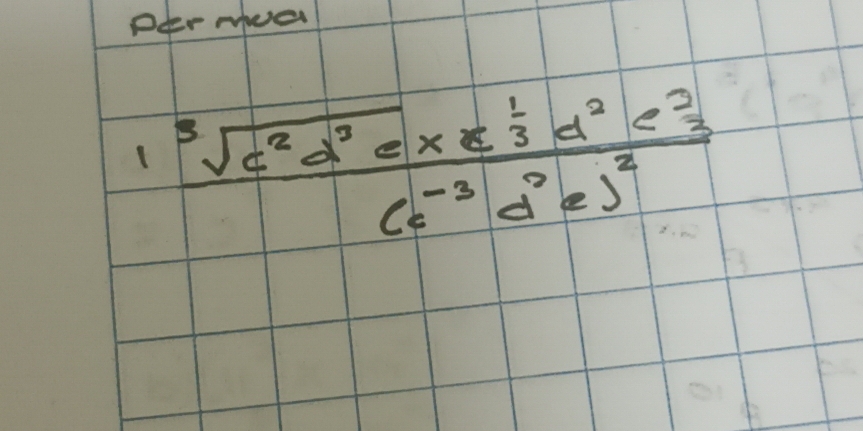 Permua
1 ³√(c² d³ e) × c^(1/3) d² e^(2/3)
(c⁻³ d² e)²